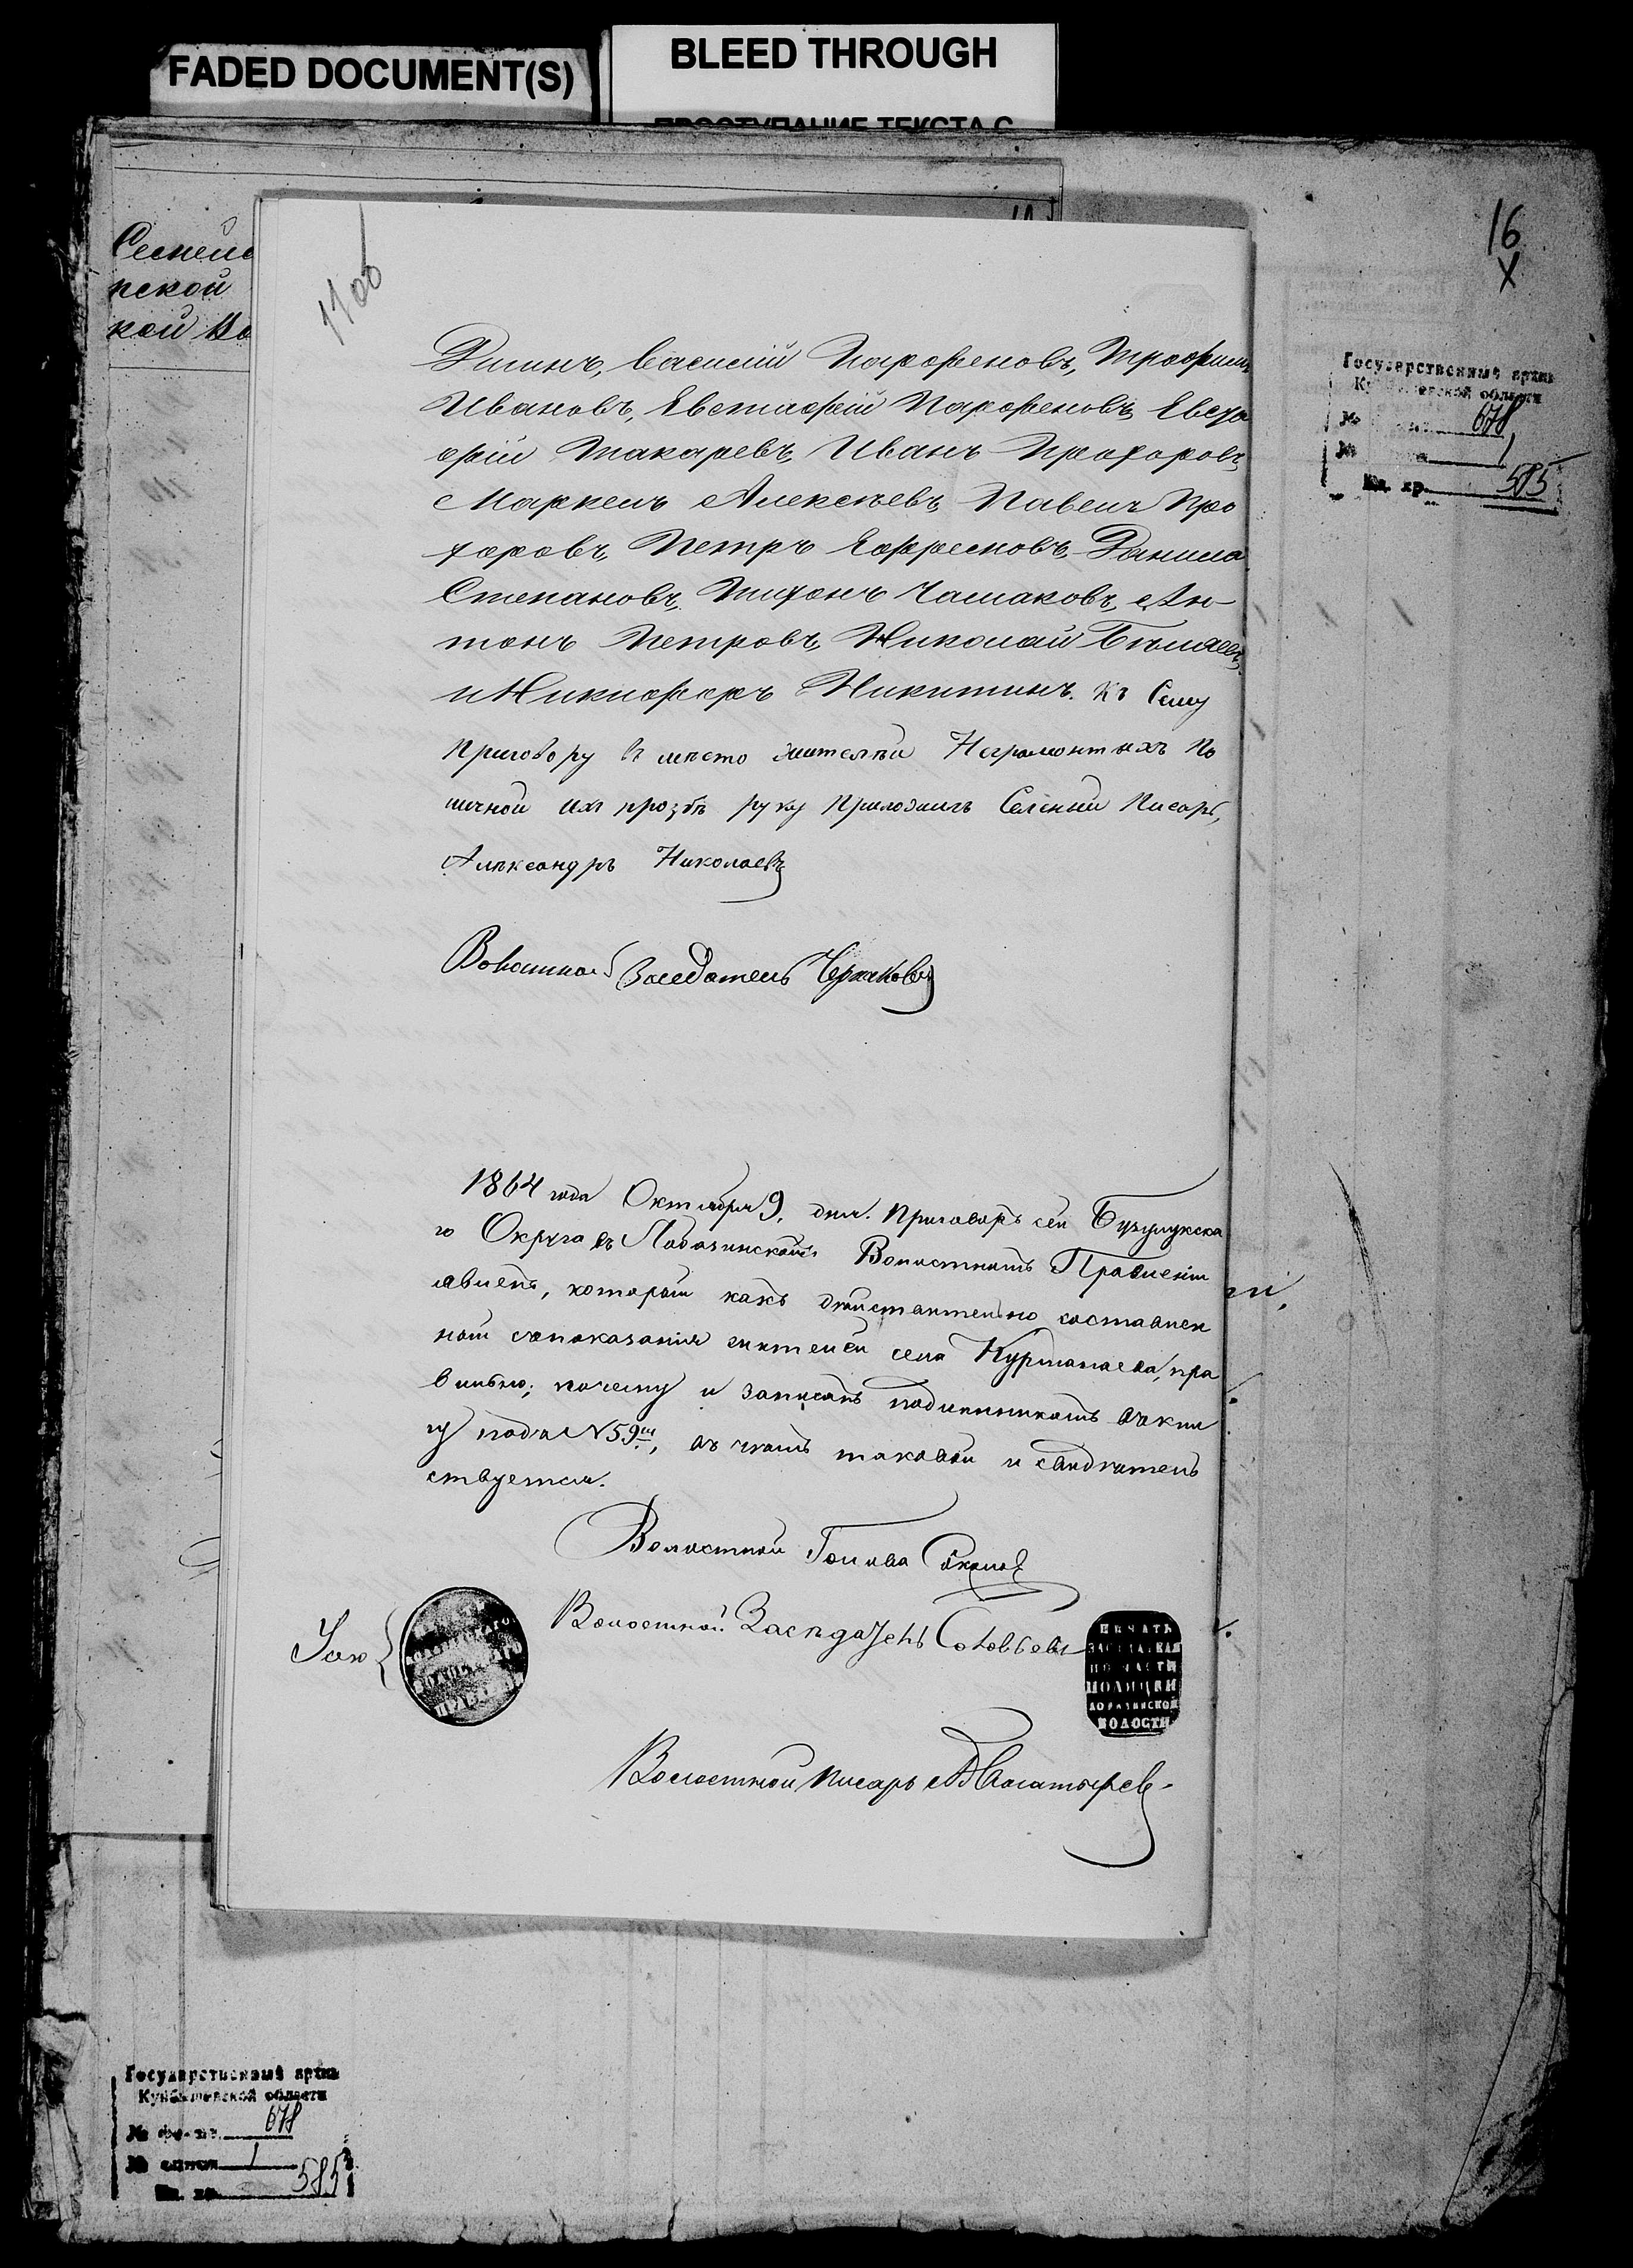 FADED DOCUMENT(S)
BLEED THROUGH
ПРОСТУПАНИЕ ТЕКСТА С
16
Семейс
кой Во
Государственный архив
Куйбышевской области
№ 678
№ 1
Ед. хр. 585
Василий Парфеновъ, Трофимъ
Ивановъ, Евстафій Парфеновъ, Евгра
фій Макаревъ, Иванъ Прохоровъ,
Маркелъ Алексѣевъ, Павелъ Про
хоровъ, Петръ Ефремовъ, Данила
Степановъ, Тихонъ Чашаковъ, Ан-
тонъ Петровъ, Николай Бѣляевъ,
и Никифоръ Никитинъ. Къ Сему
приговору в место жителѣй Неграмонтныхъ По
личной ихъ прозбѣ руку приложилъ Селскии Писарь,
Алѣксандръ Николаевъ
Волостной Заседатель
1864 года Октября 9. дня. Приговоръ сей Бузулукска
го Округа въ Лобазинскомъ Волостномъ Правленіи
явленъ, которой какъ дѣйствительно составлен
ной с показанія жителей села Курманаевка, пра
вильно; почему и записанъ подлинникомъ в кни
гу подъ № 59ш, въ чемъ таковой и свидѣтель
ствуется.
Волостной Голова Соколов
Волостной Засѣдатель Соловьевъ
ПЕЧАТЬ
ПО ЧАСТИ
ПОЛИЦІИ
ЛОБАЗИНСКОЙ
ВОЛОСТИ
Волостной Писарь Богатырев
Государственный архив
Куйбышевской области
№ фонда 678
№ описи 1
Ед. хр. 585